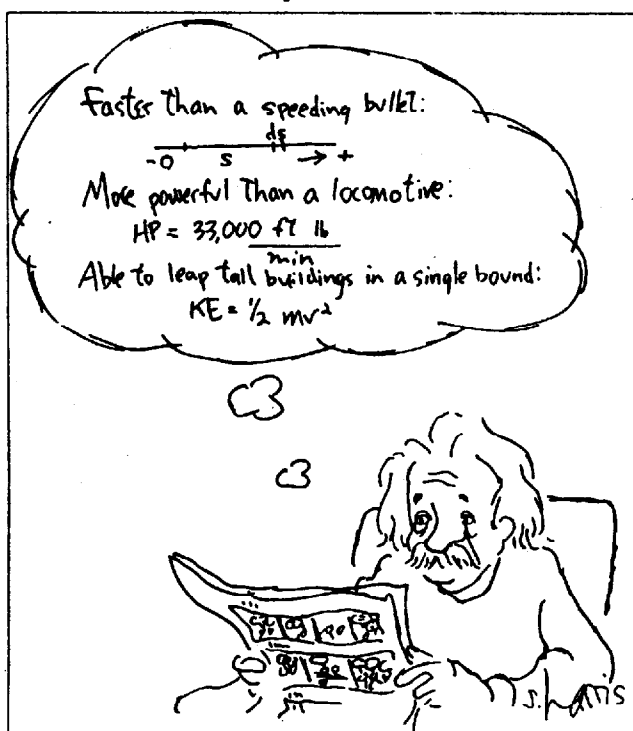 Faster Than a speeding bullet:
ds
-0 s → +
More powerful Than a locomotive:
HP = 33,000 ft lb
min
Able to leap tall buildings in a single bound:
KE = ½ mv²
s. harris